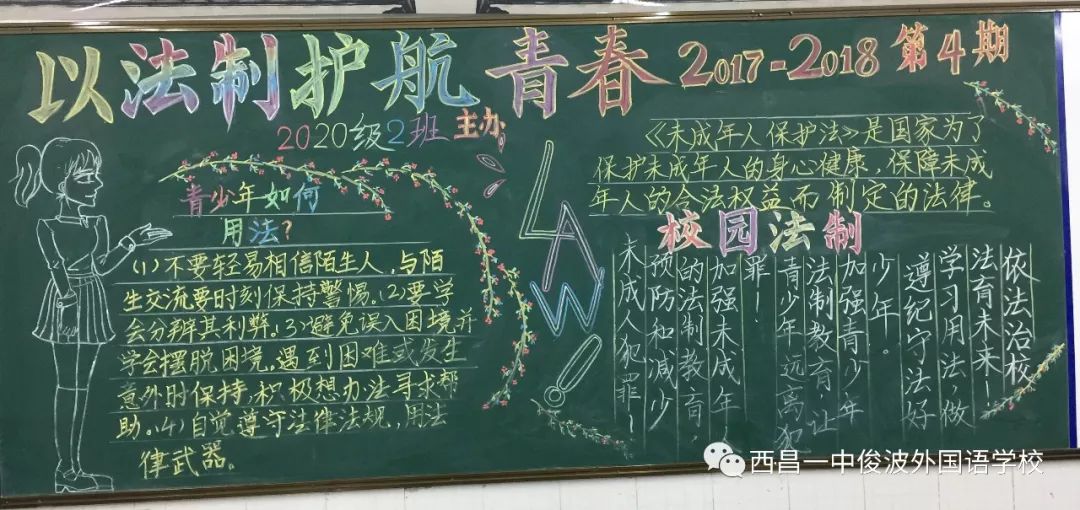 以法制护航 青春 2017-2018 第4期
2020级2班 主办
青少年如何
用法?
(1)不要轻易相信陌生人,与陌
生交流要时刻保持警惕。(2)要学
会分辨其利弊。(3)避免误入困境并
学会摆脱困境,遇到困难或发生
意外时保持,积极想办法寻求帮
助。(4)自觉遵守法律法规,用法
律武器。
LAW
《未成年人保护法》是国家为了
保护未成年人的身心健康,保障未成
年人的合法权益而制定的法律。
校园法制
依法治校
法育未来!
学习用法,做
遵纪守法好
少年。
加强青少年
法制教育,让
青少年远离犯
罪!
加强未成年人
的法制教育,
预防和减少
未成人犯罪!
西昌一中俊波外国语学校